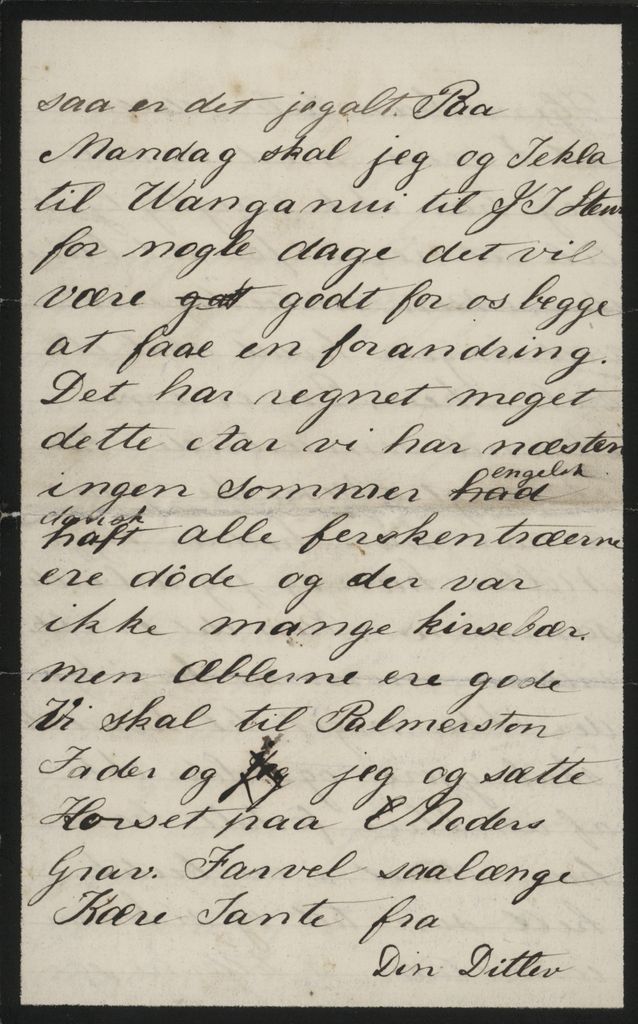 saa er det jegalt. Paa
Mandag skal jeg og Tekla
til Wanganui til J J Stew
for nogle dage det vil
være got godt for os begge
at faae en forandring.
Det har regnet meget
dette Aar vi har næsten
ingen sommer had engelsk
dansk haft alle ferskentræerne
ere døde og der var
ikke mange kirsebær.
men Æblerne ere gode
Vi skal til Palmerston
Fader og jeg jeg og sætte
Korset paa Moders
Grav. Farvel saalænge
Kære Tante fra
Din Ditlev